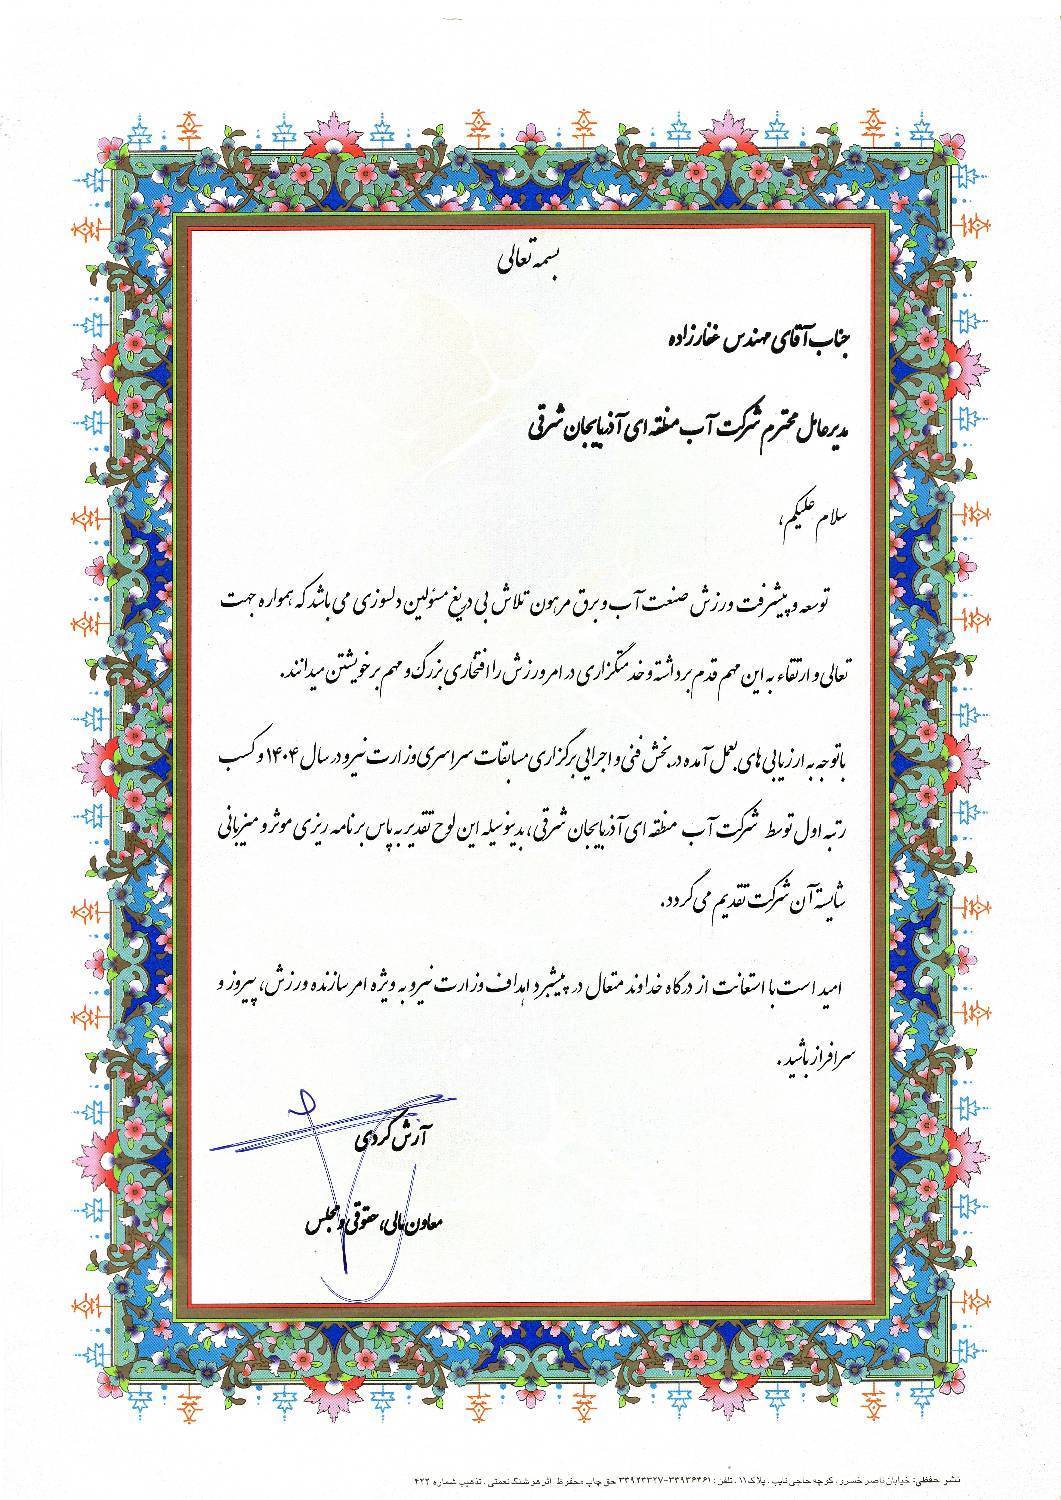 بسمه تعالی
جناب آقای مهندس غفارزاده
مدیرعامل محترم شرکت آب منطقه ای آذربایجان شرقی
سلام علیکم،
توسعه و پیشرفت ورزش صنعت آب و برق مرهون تلاش بی دریغ مسئولین دلسوزی می باشد که همواره جهت
تعالی و ارتقاء به این مهم قدم برداشته و خدمتگزاری در امر ورزش را افتخاری بزرگ و مهم بر خویشتن میدانند.
باتوجه به ارزیابی های بعمل آمده در بخش فنی و اجرایی برگزاری مسابقات سراسری وزارت نیرو در سال ۱۴۰۴ و کسب
رتبه اول توسط شرکت آب منطقه ای آذربایجان شرقی، بدینوسیله این لوح تقدیر به پاس برنامه ریزی موثر و میزبانی
شایسته آن شرکت تقدیم می گردد.
امید است با استعانت از درگاه خداوند متعال در پیشبرد اهداف وزارت نیرو به ویژه امر سازنده ورزش، پیروز و
سرافراز باشید.
آرش کردی
معاون مالی، حقوقی و مجلس
نشر حفظی: خیابان ناصر خسرو، کوچه حاجی نایب، پلاک ۱۱، تلفن: ۳۳۹۳۶۴۶۱-۳۳۹۲۳۳۲۷ حق چاپ محفوظ اثر هوشنگ نعمتی، تذهیب شماره ۴۲۲